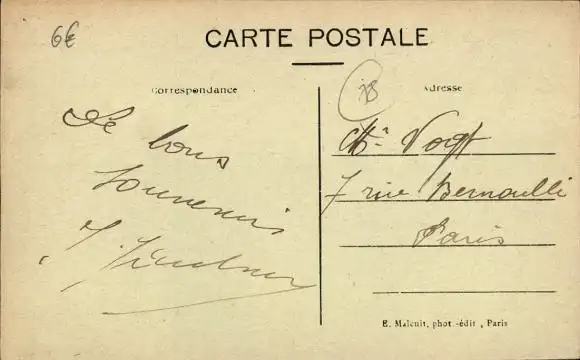 6€
CARTE POSTALE
Correspondance
Adresse
78
De bons
souvenirs
Mr Vogt
7 rue Bernoulli
Paris
E. Malcuit, phot.-édit, Paris